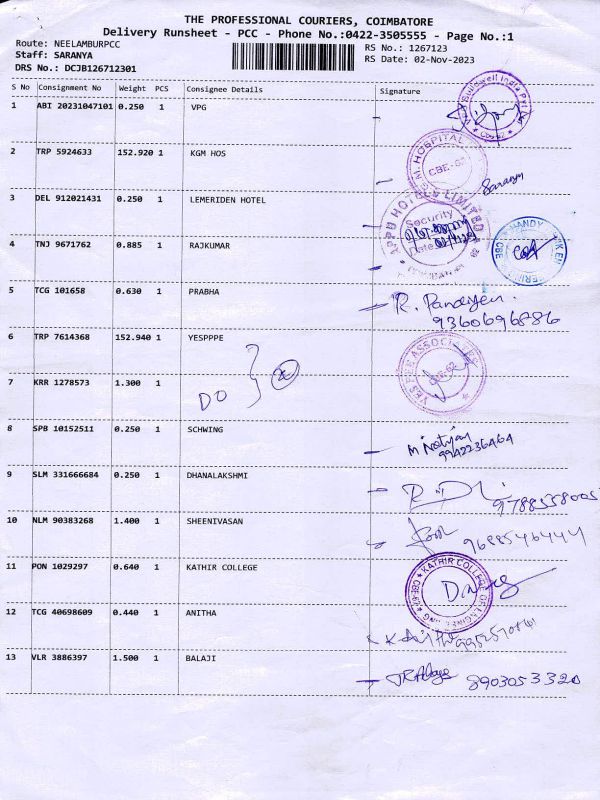 THE PROFESSIONAL COURIERS, COIMBATORE
Delivery Runsheet - PCC - Phone No.:0422-3505555 - Page No.:1
Route: NEELAMBURPCC
Staff: SARANYA
DRS No.: DCJB126712301
RS No.: 1267123
RS Date: 02-Nov-2023
S No Consignment No Weight PCS Consignee Details Signature
1 ABI 20231047101 0.250 1 VPG
2 TRP 5924633 152.920 1 KGM HOS
HOSPITAL
CBE-62
Saranya
3 DEL 912021431 0.250 1 LEMERIDEN HOTEL
APPU HOTELS LIMITED
Security
Date
4 TNJ 9671762 0.885 1 RAJKUMAR
5 TCG 101658 0.630 1 PRABHA
R. Pandiyan.
9360696886
6 TRP 7614368 152.940 1 YESPPPE
YES PEE ASSOCIATES
DO
7 KRR 1278573 1.300 1
8 SPB 10152511 0.250 1 SCHWING
9942236464
9 SLM 331666684 0.250 1 DHANALAKSHMI
9788558005
10 NLM 90383268 1.400 1 SHEENIVASAN
9688546444
11 PON 1029297 0.640 1 KATHIR COLLEGE
KATHIR COLLEGE OF ENGINEERING
CBE-62
12 TCG 40698609 0.440 1 ANITHA
13 VLR 3886397 1.500 1 BALAJI
8903053320